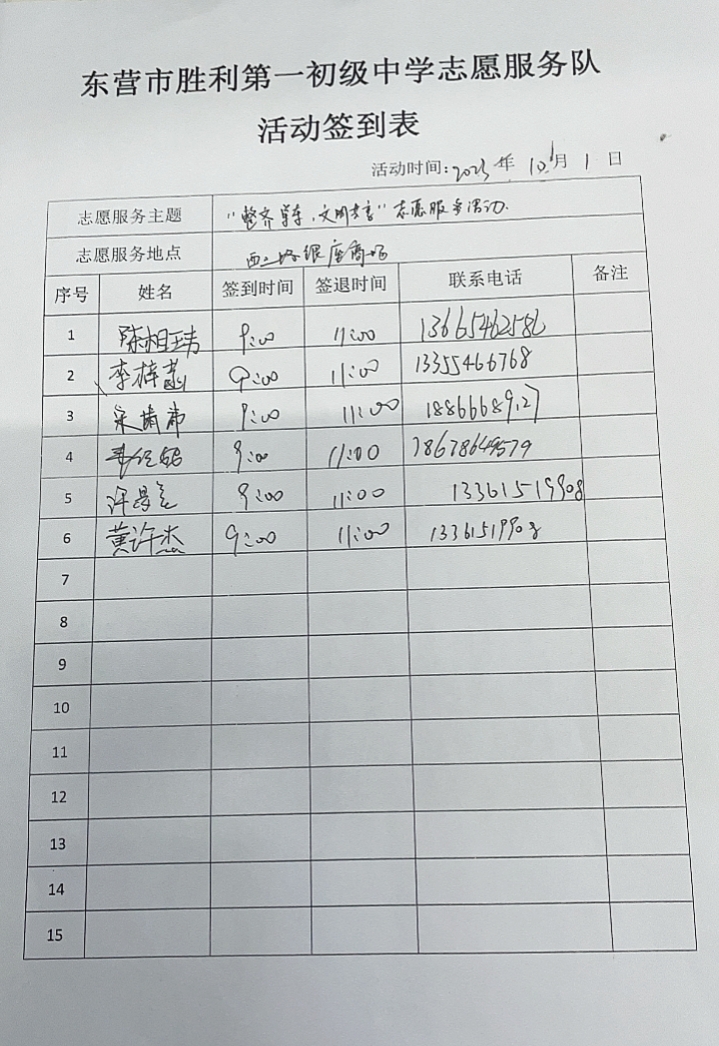 东营市胜利第一初级中学志愿服务队
活动签到表
活动时间:2023年 10月 1 日
志愿服务主题 "整齐单车,文明" 志愿服务活动.
志愿服务地点 西二路银座商场
序号 姓名 签到时间 签退时间 联系电话 备注
1 陈相玮 9:00 11:00 13665462586
2 李梓菡 9:00 11:00 13355466768
3 9:00 11:00 18866689127
4 9:00 11:00 18678649579
5 许 9:00 11:00 13361519908
6 黄许杰 9:00 11:00 13361519908
7
8
9
10
11
12
13
14
15